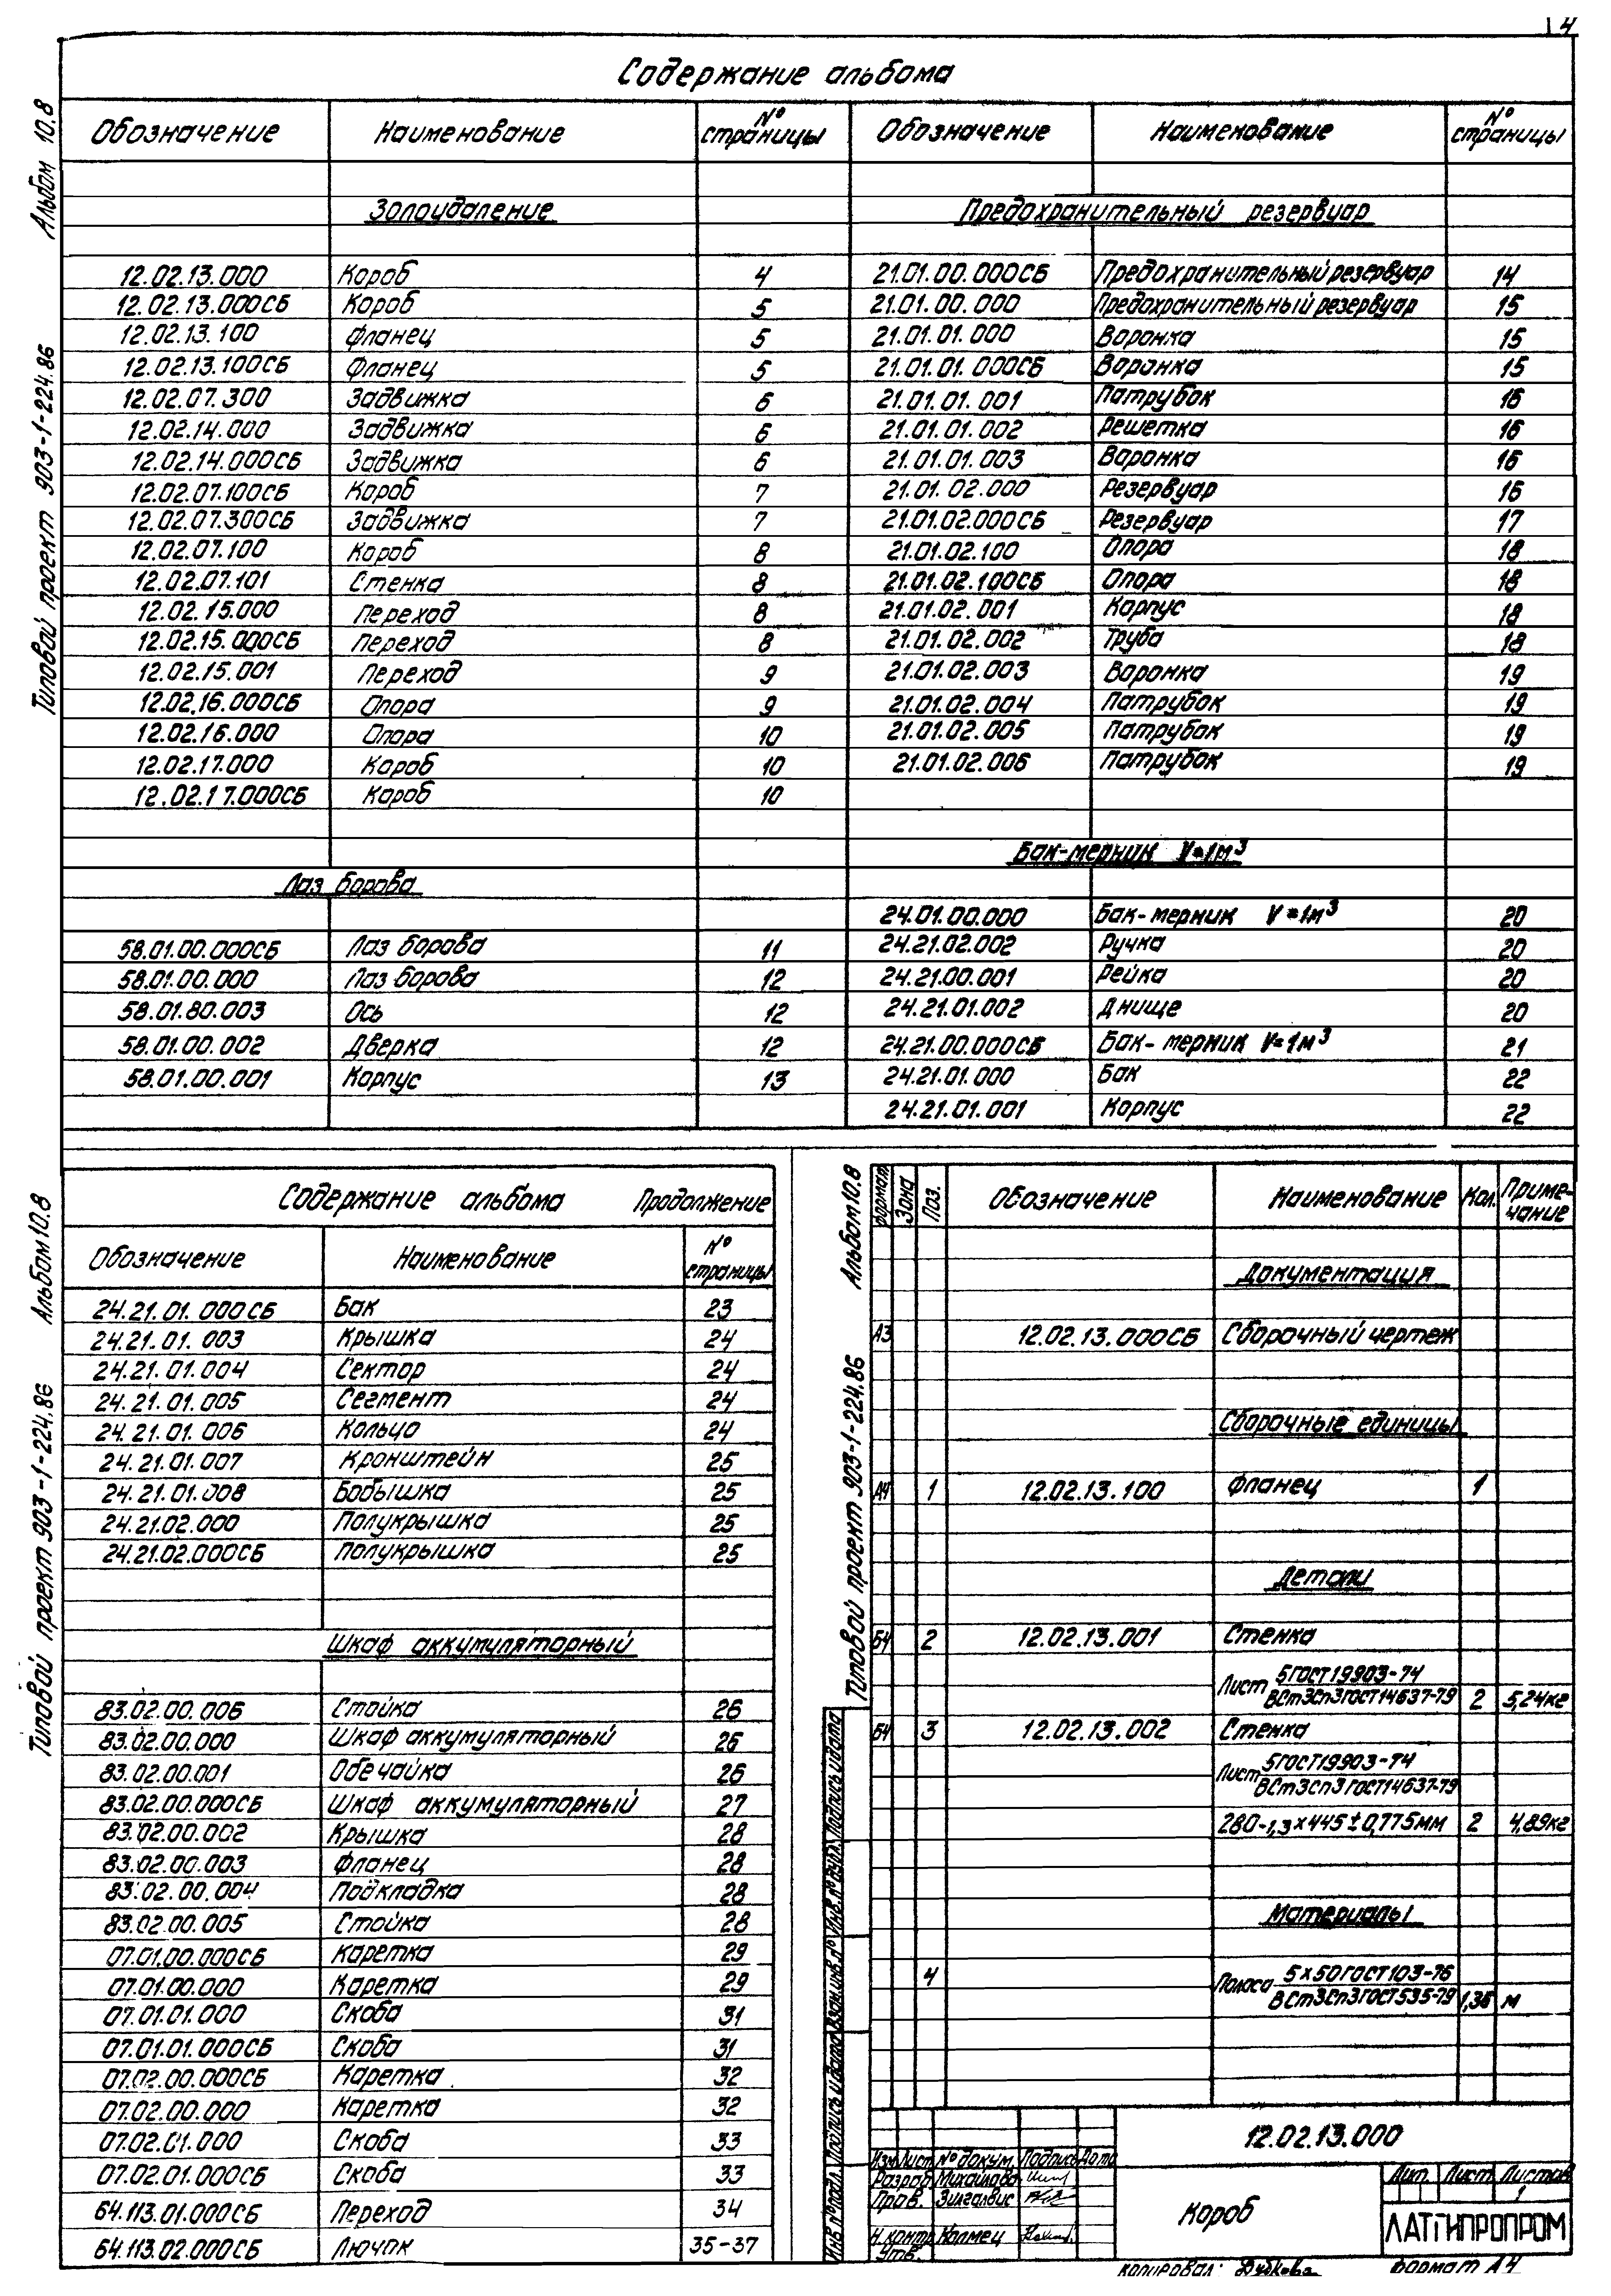 4
Содержание альбома
Обозначение Наименование № страницы Обозначение Наименование № страницы
Альбом 10.8
Типовой проект 903-1-224.86
Золоудаление
12.02.13.000 Короб 4
12.02.13.000СБ Короб 5
12.02.13.100 Фланец 5
12.02.13.100СБ Фланец 5
12.02.07.300 Задвижка 6
12.02.14.000 Задвижка 6
12.02.14.000СБ Задвижка 6
12.02.07.100СБ Короб 7
12.02.07.300СБ Задвижка 7
12.02.07.100 Короб 8
12.02.07.101 Стенка 8
12.02.15.000 Переход 8
12.02.15.000СБ Переход 8
12.02.15.001 Переход 9
12.02.16.000СБ Опора 9
12.02.16.000 Опора 10
12.02.17.000 Короб 10
12.02.17.000СБ Короб 10
Лаз борова
58.01.00.000СБ Лаз борова 11
58.01.00.000 Лаз борова 12
58.01.80.003 Ось 12
58.01.00.002 Дверка 12
58.01.00.001 Корпус 13
Предохранительный резервуар
21.01.00.000СБ Предохранительный резервуар 14
21.01.00.000 Предохранительный резервуар 15
21.01.01.000 Воронка 15
21.01.01.000СБ Воронка 15
21.01.01.001 Патрубок 16
21.01.01.002 Решетка 16
21.01.01.003 Воронка 16
21.01.02.000 Резервуар 16
21.01.02.000СБ Резервуар 17
21.01.02.100 Опора 18
21.01.02.100СБ Опора 18
21.01.02.001 Корпус 18
21.01.02.002 Труба 18
21.01.02.003 Воронка 19
21.01.02.004 Патрубок 19
21.01.02.005 Патрубок 19
21.01.02.006 Патрубок 19
Бак-мерник V=1м³
24.01.00.000 Бак-мерник V=1м³ 20
24.21.02.002 Ручка 20
24.21.00.001 Рейка 20
24.21.01.002 Днище 20
24.21.00.000СБ Бак-мерник V=1м³ 21
24.21.01.000 Бак 22
24.21.01.001 Корпус 22
Альбом 10.8
Типовой проект 903-1-224.86
Содержание альбома Продолжение
Обозначение Наименование № страницы
24.21.01.000СБ Бак 23
24.21.01.003 Крышка 24
24.21.01.004 Сектор 24
24.21.01.005 Сегмент 24
24.21.01.006 Кольцо 24
24.21.01.007 Кронштейн 25
24.21.01.008 Бобышка 25
24.21.02.000 Полукрышка 25
24.21.02.000СБ Полукрышка 25
Шкаф аккумуляторный
83.02.00.006 Стойка 26
83.02.00.000 Шкаф аккумуляторный 26
83.02.00.001 Обечайка 26
83.02.00.000СБ Шкаф аккумуляторный 27
83.02.00.002 Крышка 28
83.02.00.003 Фланец 28
83.02.00.004 Подкладка 28
83.02.00.005 Стойка 28
07.01.00.000СБ Каретка 29
07.01.00.000 Каретка 29
07.01.01.000 Скоба 31
07.01.01.000СБ Скоба 31
07.02.00.000СБ Каретка 32
07.02.00.000 Каретка 32
07.02.01.000 Скоба 33
07.02.01.000СБ Скоба 33
64.113.01.000СБ Переход 34
64.113.02.000СБ Лючок 35-37
Альбом 10.8
Типовой проект 903-1-224.86
Формат Зона Поз. Обозначение Наименование Кол. Примечание
Документация
А3 12.02.13.000СБ Сборочный чертеж
Сборочные единицы
А4 1 12.02.13.100 Фланец 1
Детали
Б4 2 12.02.13.001 Стенка
Лист 5ГОСТ19903-74
ВСт3сп3ГОСТ14637-79 2 5,24кг
Б4 3 12.02.13.002 Стенка
Лист 5ГОСТ19903-74
ВСт3сп3ГОСТ14637-79
280-1,3×445±0,775мм 2 4,89кг
Материалы
4 Полоса 5×50ГОСТ103-76
ВСт3сп3ГОСТ535-79 1,36 м
Инв.№подл. Подпись и дата Взам.инв.№ Инв.№дубл. Подпись и дата
12.02.13.000
Изм Лист №докум. Подпись Дата
Разраб. Михайлова
Пров. Зилгалвис
Н.контр. Колмец
Утв.
Короб
Лит. Лист Листов
1
ЛАТГИПРОПРОМ
Копировал: Формат А4